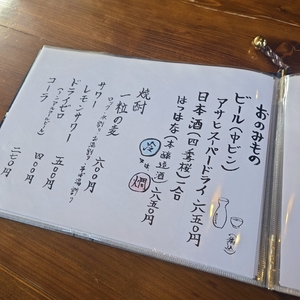 おのみもの
ビール(中ビン)
アサヒスーパードライ 六五〇円
日本酒(四季桜)一合
はつはな(本醸造酒) 六五〇円
冷 燗
焼酎
一粒の麦
ロック・水割り・お湯割り 六〇〇円
サワー
レモンサワー 五〇〇円
ドライゼロ
(ノンアルコールビール) 四〇〇円
コーラ 二七〇円